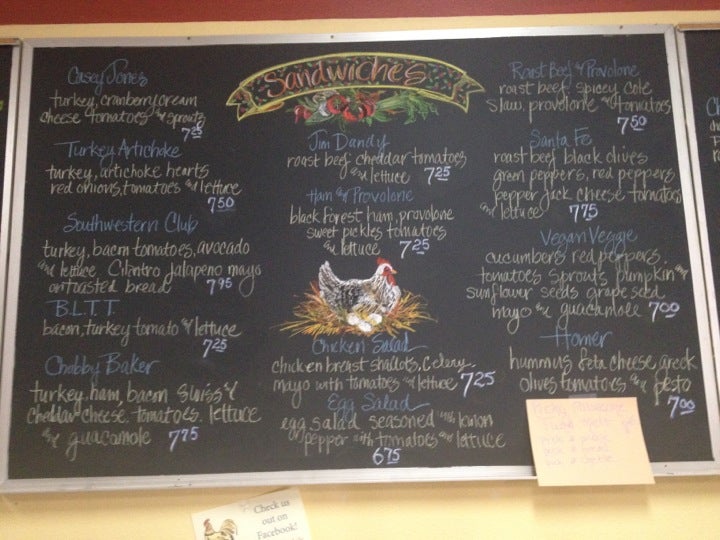 Sandwiches
Casey Jones
turkey, cranberry cream
cheese tomatoes & sprouts
7.25
Turkey Artichoke
turkey, artichoke hearts
red onions, tomatoes & lettuce
7.50
Southwestern Club
turkey, bacon tomatoes, avocado
and lettuce. Cilantro jalapeno mayo
on toasted bread 7.95
B.L.T.T.
bacon, turkey tomato & lettuce
7.25
Chabby Baker
turkey, ham, bacon Swiss &
cheddar cheese. tomatoes. lettuce
& guacamole 7.75
Jim Dandy
roast beef cheddar tomatoes
& lettuce 7.25
Ham & Provolone
black forest ham, provolone
sweet pickles tomatoes
& lettuce 7.25
Chicken Salad
chicken breast shallots, Celery
mayo with tomatoes & lettuce 7.25
Egg Salad
egg salad seasoned with
pepper with tomatoes and lettuce
6.75
Roast Beef & Provolone
roast beef, spicey cole
slaw, provolone & tomatoes
7.50
Santa Fe
roast beef black olives
green peppers, red peppers
pepper jack cheese tomatoes
and lettuce 7.75
Vegan Veggie
cucumbers red peppers.
tomatoes sprouts pumpkin &
sunflower seeds grape seed
mayo & guacamole 7.00
Homer
hummus, feta cheese, greek
olives tomatoes & pesto
7.00
Check us
out on
Facebook!